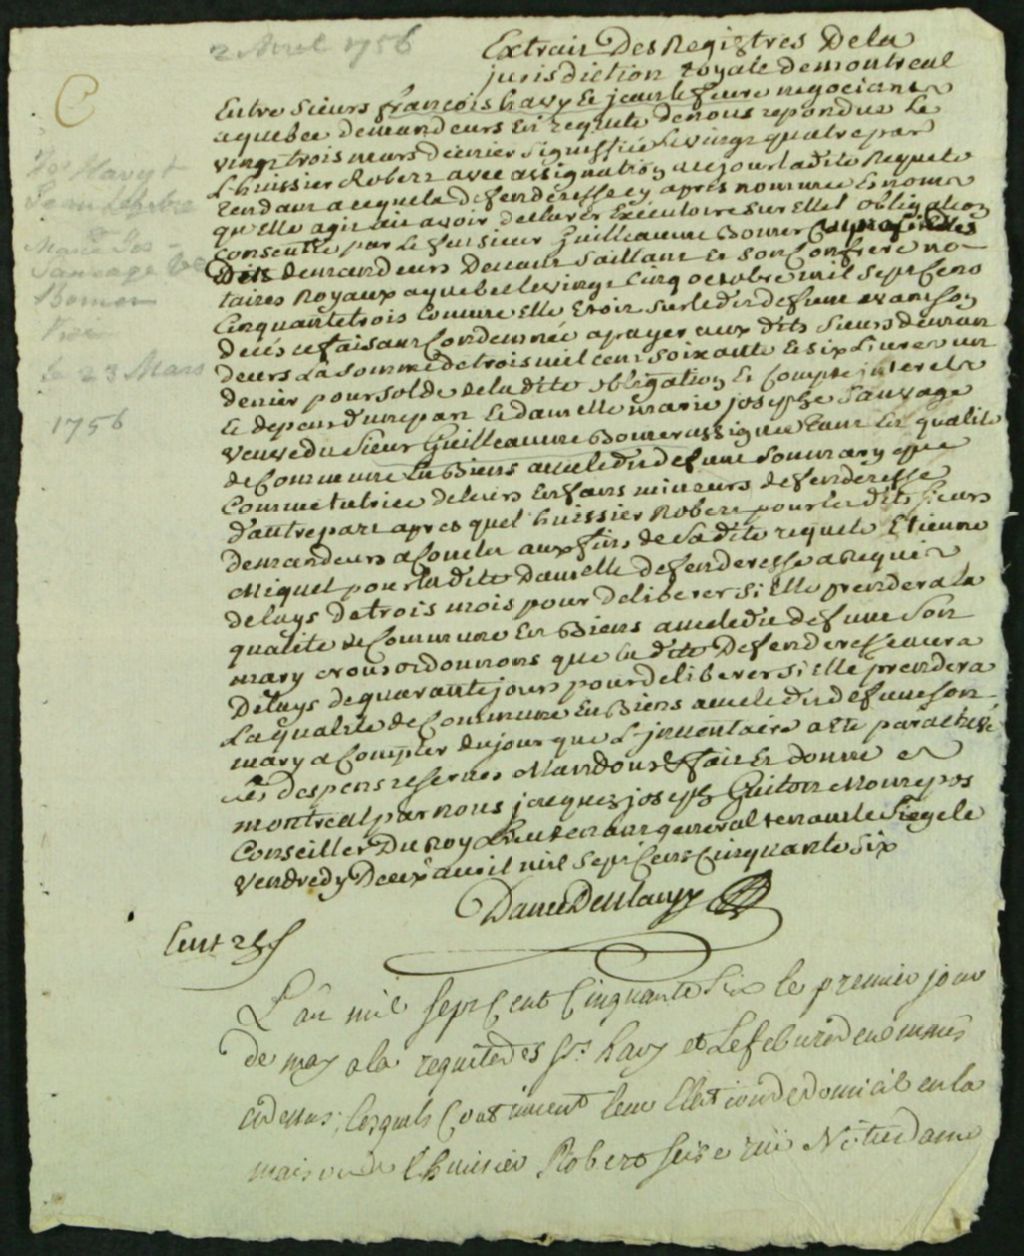 2 Avril 1756
Extrait Des Registres De la
jurisdiction royale de montreal
Entre Sieurs françois havy Et jean lefevre negocians
a quebec demandeurs En requete de nous repondue Le
vingt trois mars dernier signiffiée Le vingt quatre par
L'huissier Robert avec assignation a ce jour ladite Requete
tendante a ce que la defenderesse cy apres nommée Es noms
qu'elle agit ait a voir declarer Executoire sur Elle L'obligation
Consentie par Le feu sieur Guilleaume Bonner au profit des
Dits demandeurs Devant Saillant Et son Confrere no-
taires Royaux a quebec le vingt Cinq octobre mil sept Cent
Cinquante trois Comme Elle Etoit sur le dit defunt avant son
decés ce faisant Condemnée a payer aux dits Sieurs deman
deurs La somme de trois mil cent soixante Et six Livres un
denier pour solde de la dite obligation Et Compte interets
Et depens d'une part Et damelle marie josephe Sauvage
veuve du sieur Guilleaume Bonner assignée tant En qualité
de Commune En Biens avec le dit defunt son mary que
Comme tutrice de leurs Enfans mineurs defenderesse
d'autre part apres quel huissier Robert pour les dits sieurs
demandeurs a Conclu aux fins de la dite requete Etienne
Miquel pour la dite Damelle defenderesse a Requis
delays de trois mois pour deliberer si Elle prendera la
qualité de Commune En Biens avec le dit defunt son
mary Nous ordonnons que la dite Defenderesse aura
Delays de quarante jours pour deliberer si elle prendera
La qualité de Commune En Biens avec le dit defunt son
mary a Compter du jour que L'inventaire a Ete parachevé
despens reservés Mandons &c fait Et donné a
montreal par nous jacques joseph Guiton Monrepos
Conseiller Du Roy Lieutenant general tenant le Siege le
vendredy Deux avril mil sept Cent Cinquante Six
Danré De Blanzy
L'an mil sept Cent Cinquante Six le premier jour
de may a la requete des Srs havy et Lefebvre denommés
cy dessus, lesquels Continuent leur Election de domicile en la
maison de l'huissier Robert sise rüe Notre dame
C
Havy &
Jean Lefebre
Marie Jos-
Sauvage Ve
Bonner
Le 23 Mars
1756